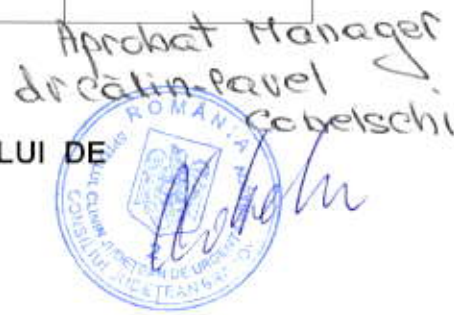 Aprobat Manager
dr călin-Pavel
Cobelschi
LUI DE
ROMÂNIA
SPITALUL CLINIC JUDEȚEAN DE URGENȚĂ
CONSILIUL JUDEȚEAN BRAȘOV